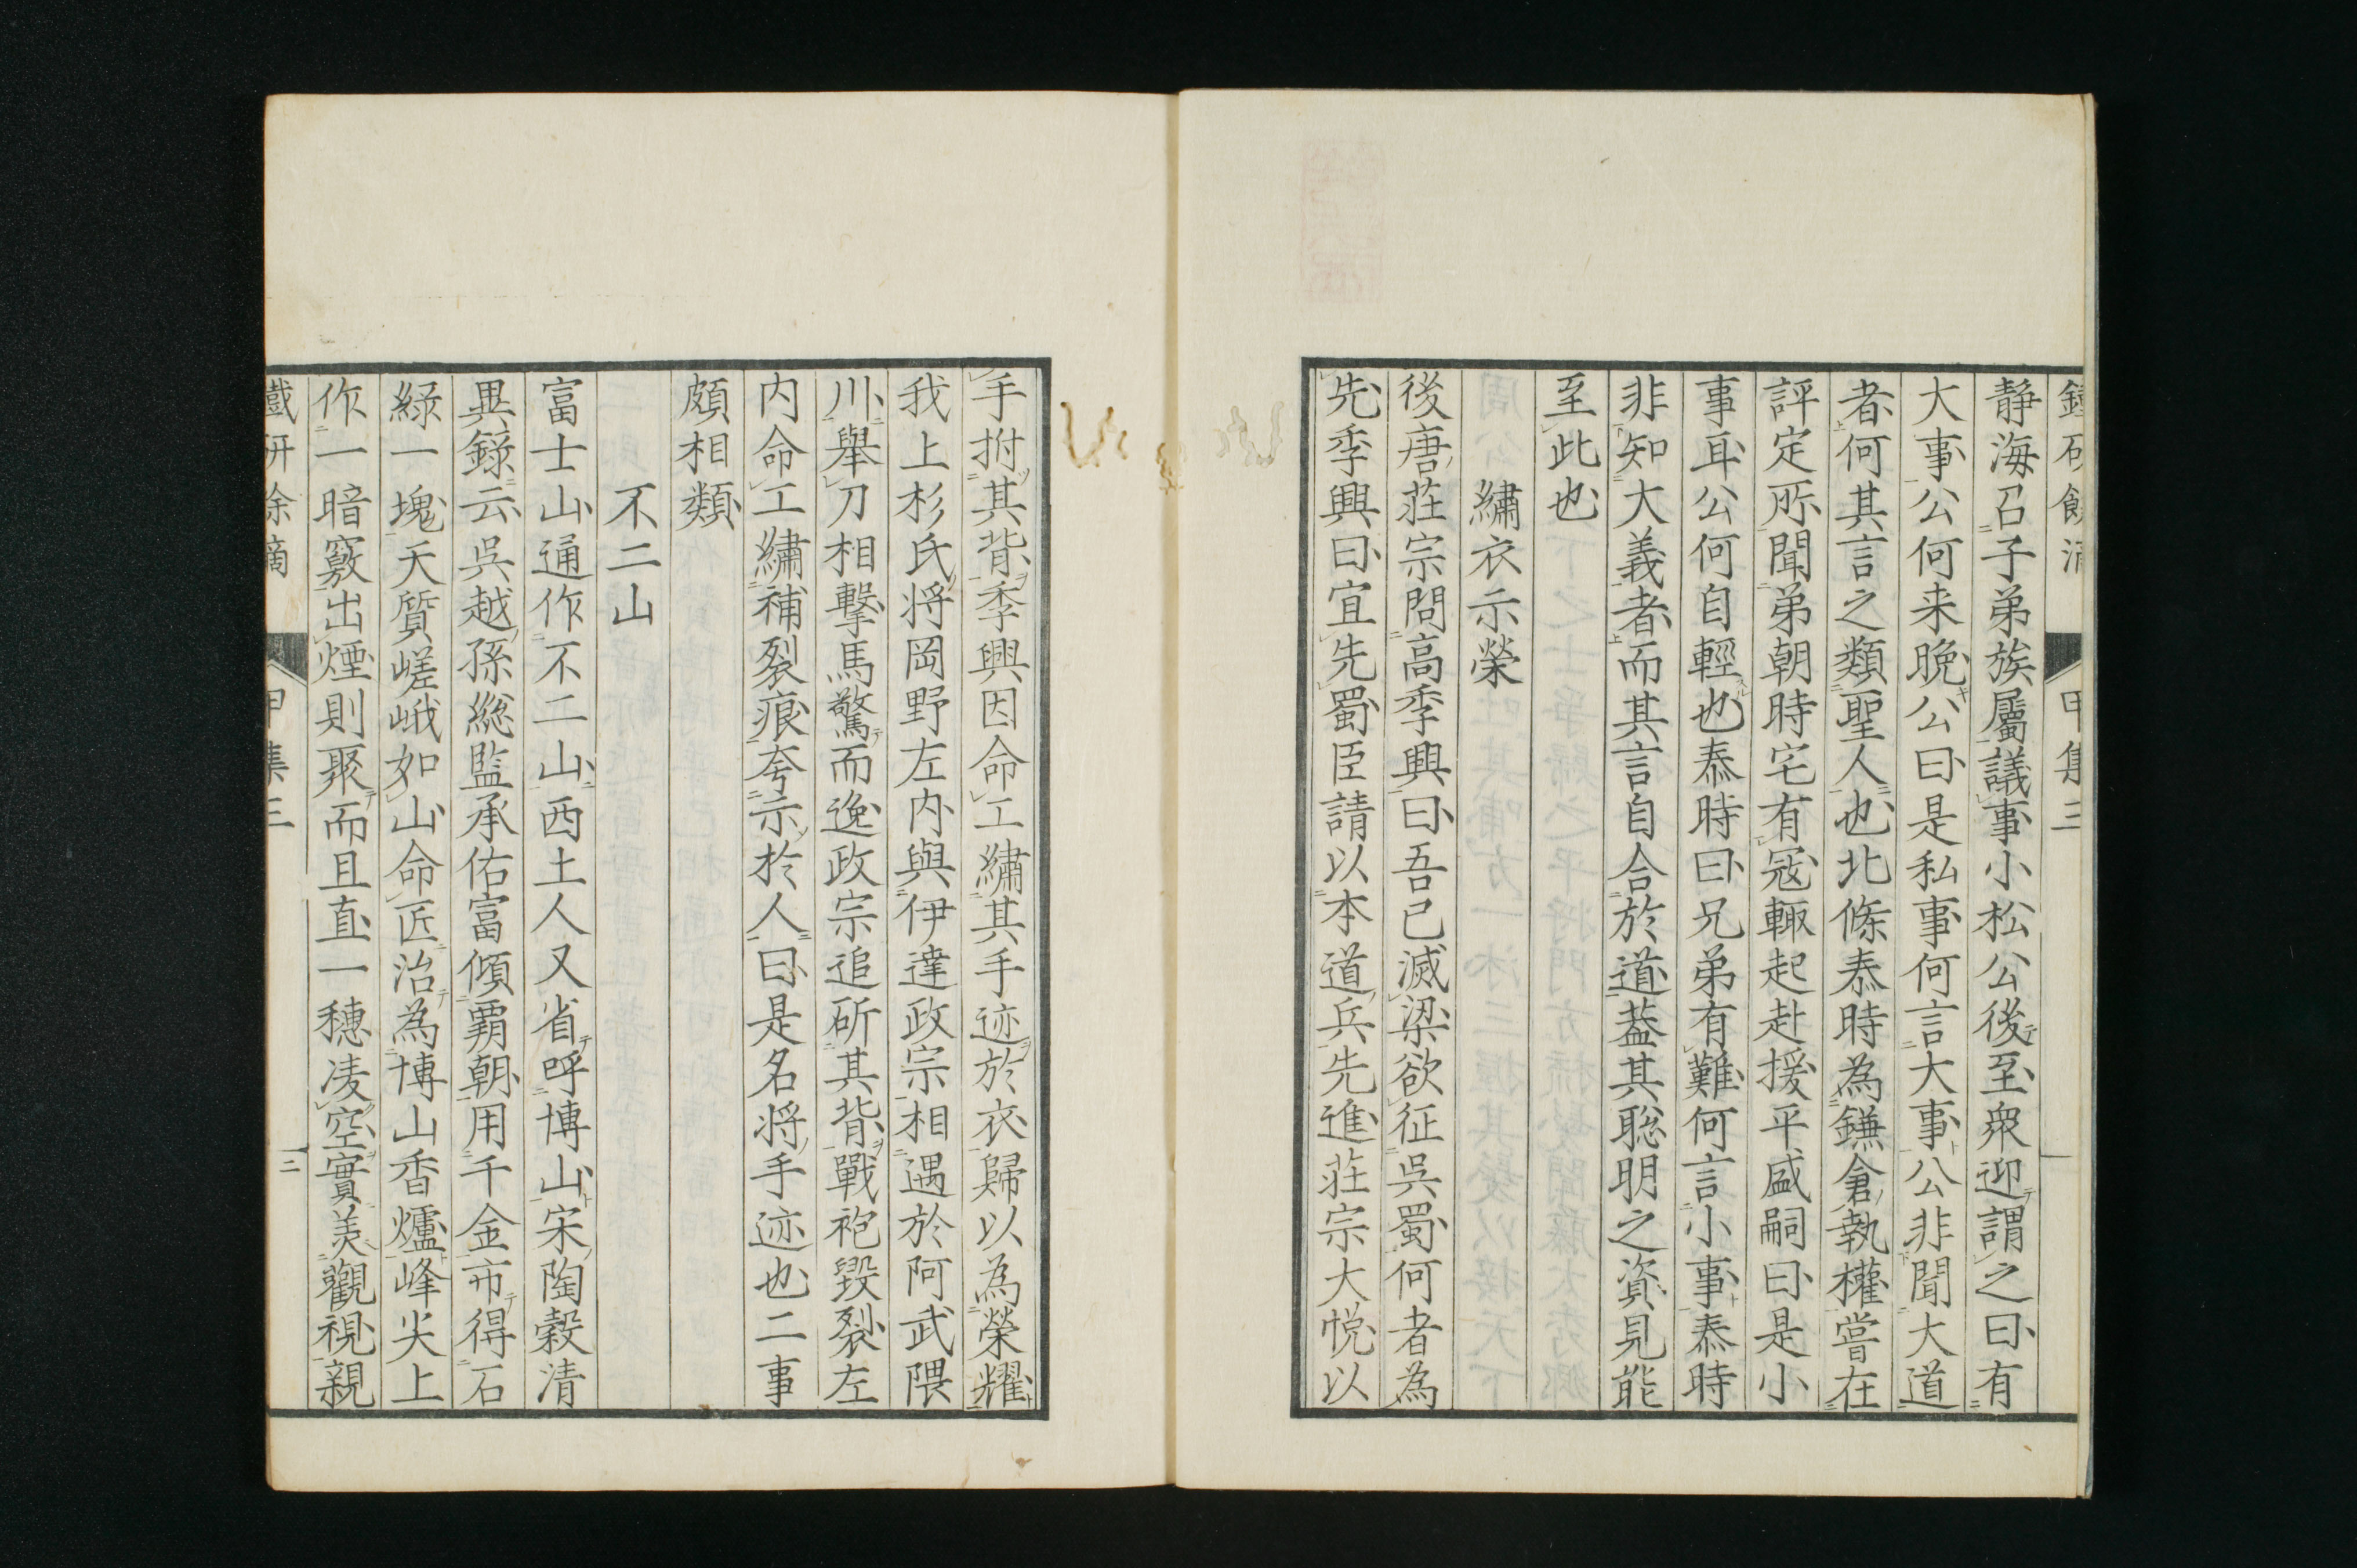 甲集三
静海召子弟族屬議事小松公後至衆迎謂之曰有
大事公何来晩公曰是私事何言大事公非聞大道
者何其言之類聖人也北條泰時為鎌倉執權嘗在
評定所聞弟朝時宅有冦輙起赴援平盛嗣曰是小
事耳公何自輕也泰時曰兄弟有難何言小事泰時
非知大義者而其言自合於道蓋其聡明之資見能
至此也
繡衣示榮
後唐荘宗問高季興曰吾已滅梁欲征吳蜀何者為
先季興曰宜先蜀臣請以本道兵先進荘宗大悦以
手拊其背季興因命工繡其手迹於衣歸以為榮耀
我上杉氏将岡野左内與伊達政宗相遇於阿武隈
川舉刀相擊馬驚而逸政宗追斫其背戰袍毀裂左
内命工繡補裂痕夸示於人曰是名将手迹也二事
頗相類
不二山
富士山通作不二山西土人又省呼博山宋陶穀清
異録云吳越孫総監承佑富傾覇朝用千金市得石
綠一塊天質嵯峨如山命匠治為博山香爐峰尖上
作一暗竅出煙則聚而且直一穗凌空實美觀視親
鐵研余滴 甲集三 三